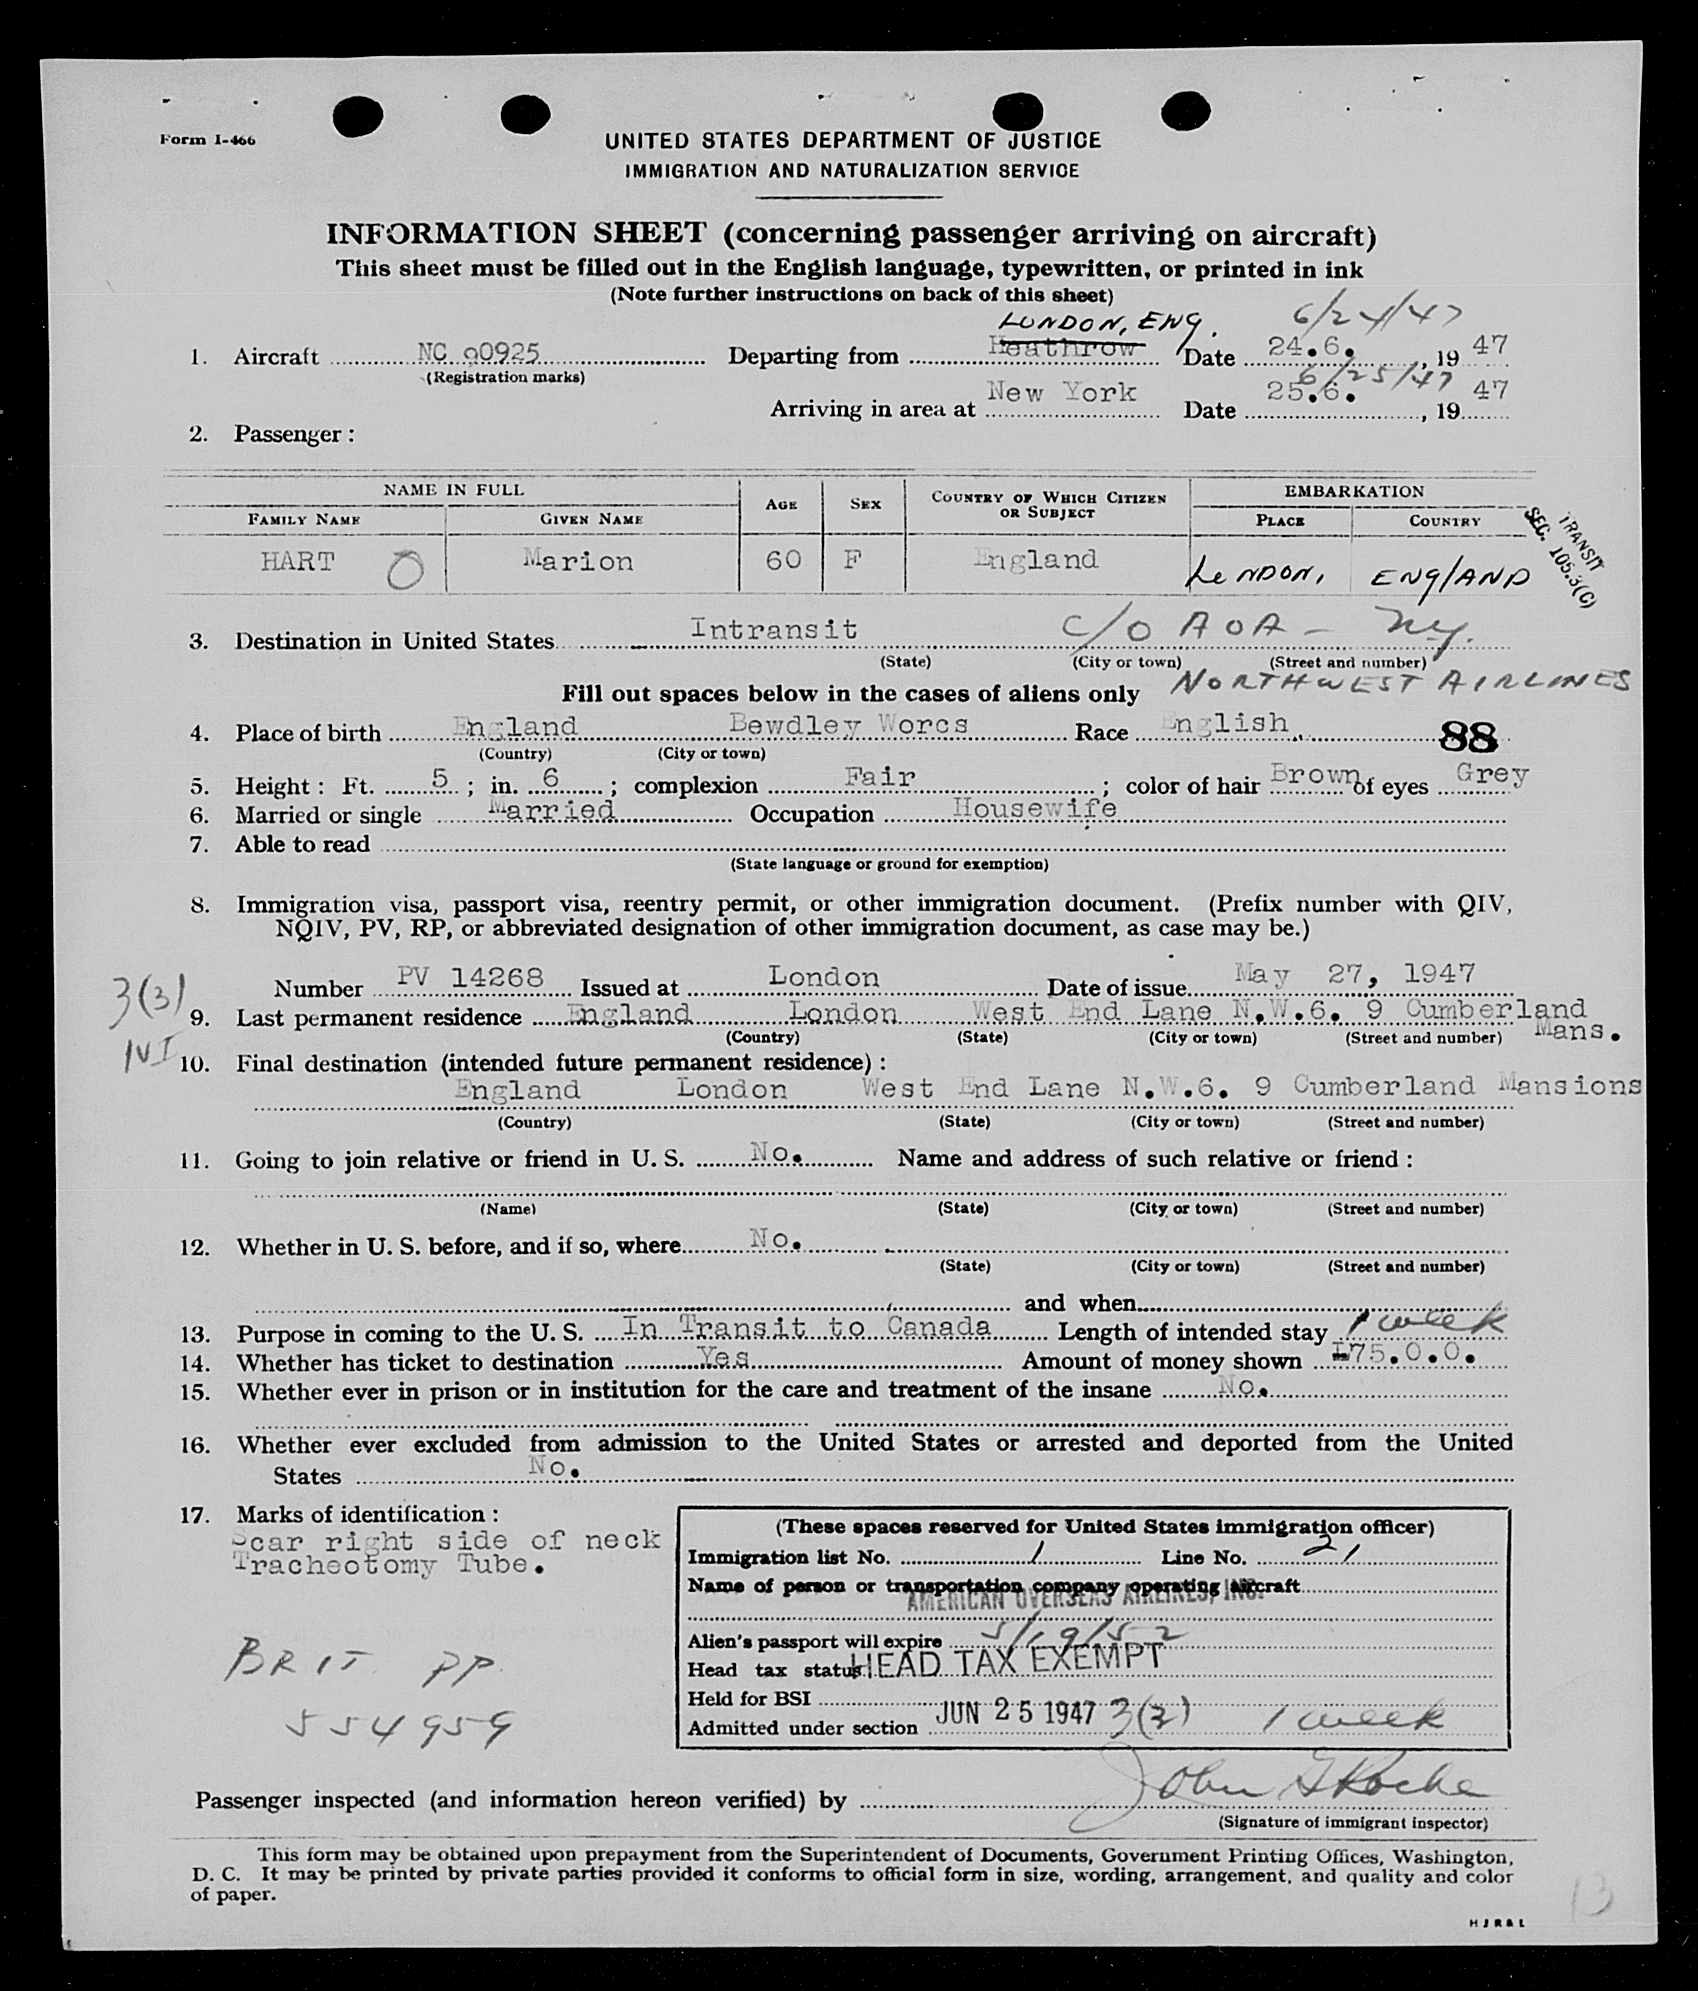 Form I-466
UNITED STATES DEPARTMENT OF JUSTICE
IMMIGRATION AND NATURALIZATION SERVICE
INFORMATION SHEET (concerning passenger arriving on aircraft)
This sheet must be filled out in the English language, typewritten, or printed in ink
(Note further instructions on back of this sheet)
LONDON, ENG. 6/24/47
1. Aircraft NC 90925 Departing from Heathrow Date 24.6. , 19 47
(Registration marks)
6/25/47
Arriving in area at New York Date 25.6. , 19 47
2. Passenger :
NAME IN FULL AGE SEX COUNTRY OF WHICH CITIZEN OR SUBJECT EMBARKATION
FAMILY NAME GIVEN NAME PLACE COUNTRY
TRANSIT
SEC. 105.3(C)
HART O Marion 60 F England LONDON, ENGLAND
3. Destination in United States Intransit C/O AOA - N.Y.
(State) (City or town) (Street and number)
Fill out spaces below in the cases of aliens only NORTHWEST AIRLINES
4. Place of birth England Bewdley Worcs Race English. 88
(Country) (City or town)
5. Height : Ft. 5 ; in. 6 ; complexion Fair ; color of hair Brown of eyes Grey
6. Married or single Married Occupation Housewife
7. Able to read
(State language or ground for exemption)
8. Immigration visa, passport visa, reentry permit, or other immigration document. (Prefix number with QIV,
NQIV, PV, RP, or abbreviated designation of other immigration document, as case may be.)
Number PV 14268 Issued at London Date of issue May 27, 1947
3(3)
9. Last permanent residence England London West End Lane N.W.6. 9 Cumberland
Mans.
(Country) (State) (City or town) (Street and number)
IVI
10. Final destination (intended future permanent residence) :
England London West End Lane N.W.6. 9 Cumberland Mansions
(Country) (State) (City or town) (Street and number)
11. Going to join relative or friend in U. S. No. Name and address of such relative or friend :
(Name) (State) (City or town) (Street and number)
12. Whether in U. S. before, and if so, where No.
(State) (City or town) (Street and number)
and when
13. Purpose in coming to the U. S. In Transit to Canada Length of intended stay 1 week
14. Whether has ticket to destination Yes Amount of money shown £75.0.0.
15. Whether ever in prison or in institution for the care and treatment of the insane No.
16. Whether ever excluded from admission to the United States or arrested and deported from the United
States No.
17. Marks of identification :
Scar right side of neck
Tracheotomy Tube.
BRIT PP
554959
(These spaces reserved for United States immigration officer)
Immigration list No. 1 Line No. 21
Name of person or transportation company operating aircraft
AMERICAN OVERSEAS AIRLINES, INC.
Alien's passport will expire 5/19/52
Head tax status HEAD TAX EXEMPT
Held for BSI
Admitted under section JUN 25 1947 3(3) 1 week
Passenger inspected (and information hereon verified) by John G Roche
(Signature of immigrant inspector)
This form may be obtained upon prepayment from the Superintendent of Documents, Government Printing Offices, Washington,
D. C. It may be printed by private parties provided it conforms to official form in size, wording, arrangement, and quality and color
of paper.
13
H J R & L